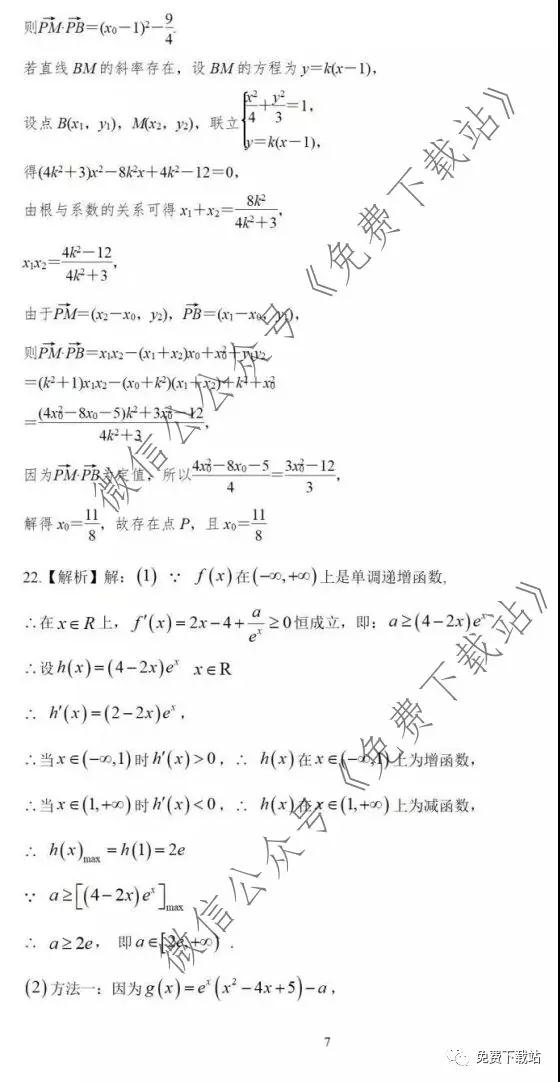 则PM·PB=(x₀-1)²-9/4.
若直线 BM 的斜率存在，设 BM 的方程为 y=k(x-1),
设点 B(x₁，y₁)，M(x₂，y₂)，联立{x²/4+y²/3=1, y=k(x-1),
得(4k²+3)x²-8k²x+4k²-12=0,
由根与系数的关系可得 x₁+x₂=8k²/(4k²+3),
x₁x₂=(4k²-12)/(4k²+3),
由于PM=(x₂-x₀，y₂)，PB=(x₁-x₀，y₁),
则PM·PB=x₁x₂-(x₁+x₂)x₀+x₀²+y₁y₂
=(k²+1)x₁x₂-(x₀+k²)(x₁+x₂)+k²+x₀²
=((4x₀²-8x₀-5)k²+3x₀²-12)/(4k²+3),
因为PM·PB为定值，所以(4x₀²-8x₀-5)/4=(3x₀²-12)/3,
解得 x₀=11/8，故存在点 P，且 x₀=11/8
22.【解析】解：(1) ∵ f(x)在(-∞,+∞)上是单调递增函数,
∴在 x∈R上，f′(x)=2x-4+a/eˣ≥0恒成立，即：a≥(4-2x)eˣ
∴设h(x)=(4-2x)eˣ x∈R
∴ h′(x)=(2-2x)eˣ，
∴当x∈(-∞,1)时h′(x)>0，∴ h(x)在x∈(-∞,1)上为增函数，
∴当x∈(1,+∞)时h′(x)<0，∴ h(x)在x∈(1,+∞)上为减函数，
∴ h(x)max=h(1)=2e
∵ a≥[(4-2x)eˣ]max
∴ a≥2e， 即a∈[2e,+∞) .
(2)方法一：因为g(x)=eˣ(x²-4x+5)-a，
7
微信公众号《免费下载站》
微信公众号《免费下载站》
免费下载站